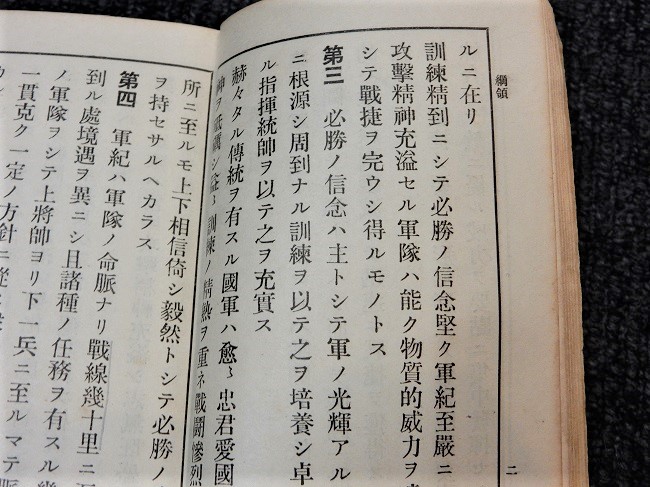 綱領
ルニ在リ
訓練精到ニシテ必勝ノ信念堅ク軍紀至嚴ニ
攻擊精神充溢セル軍隊ハ能ク物質的威力ヲ
シテ戰捷ヲ完ウシ得ルモノトス
第三 必勝ノ信念ハ主トシテ軍ノ光輝アル
ニ根源シ周到ナル訓練ヲ以テ之ヲ培養シ卓
ル指揮統帥ヲ以テ之ヲ充實ス
赫々タル傳統ヲ有スル國軍ハ愈〻忠君愛國
神ヲ砥礪シ益〻訓練ノ精熱ヲ重ネ戰鬪慘烈
二
所ニ至ルモ上下相信倚シ毅然トシテ必勝ノ
ヲ持セサルヘカラス
第四 軍紀ハ軍隊ノ命脈ナリ戰線幾十里ニ
到ル處境遇ヲ異ニシ且諸種ノ任務ヲ有スル幾
ノ軍隊ヲシテ上將帥ヨリ下一兵ニ至ルマテ脈
一貫克ク一定ノ方針ニ從